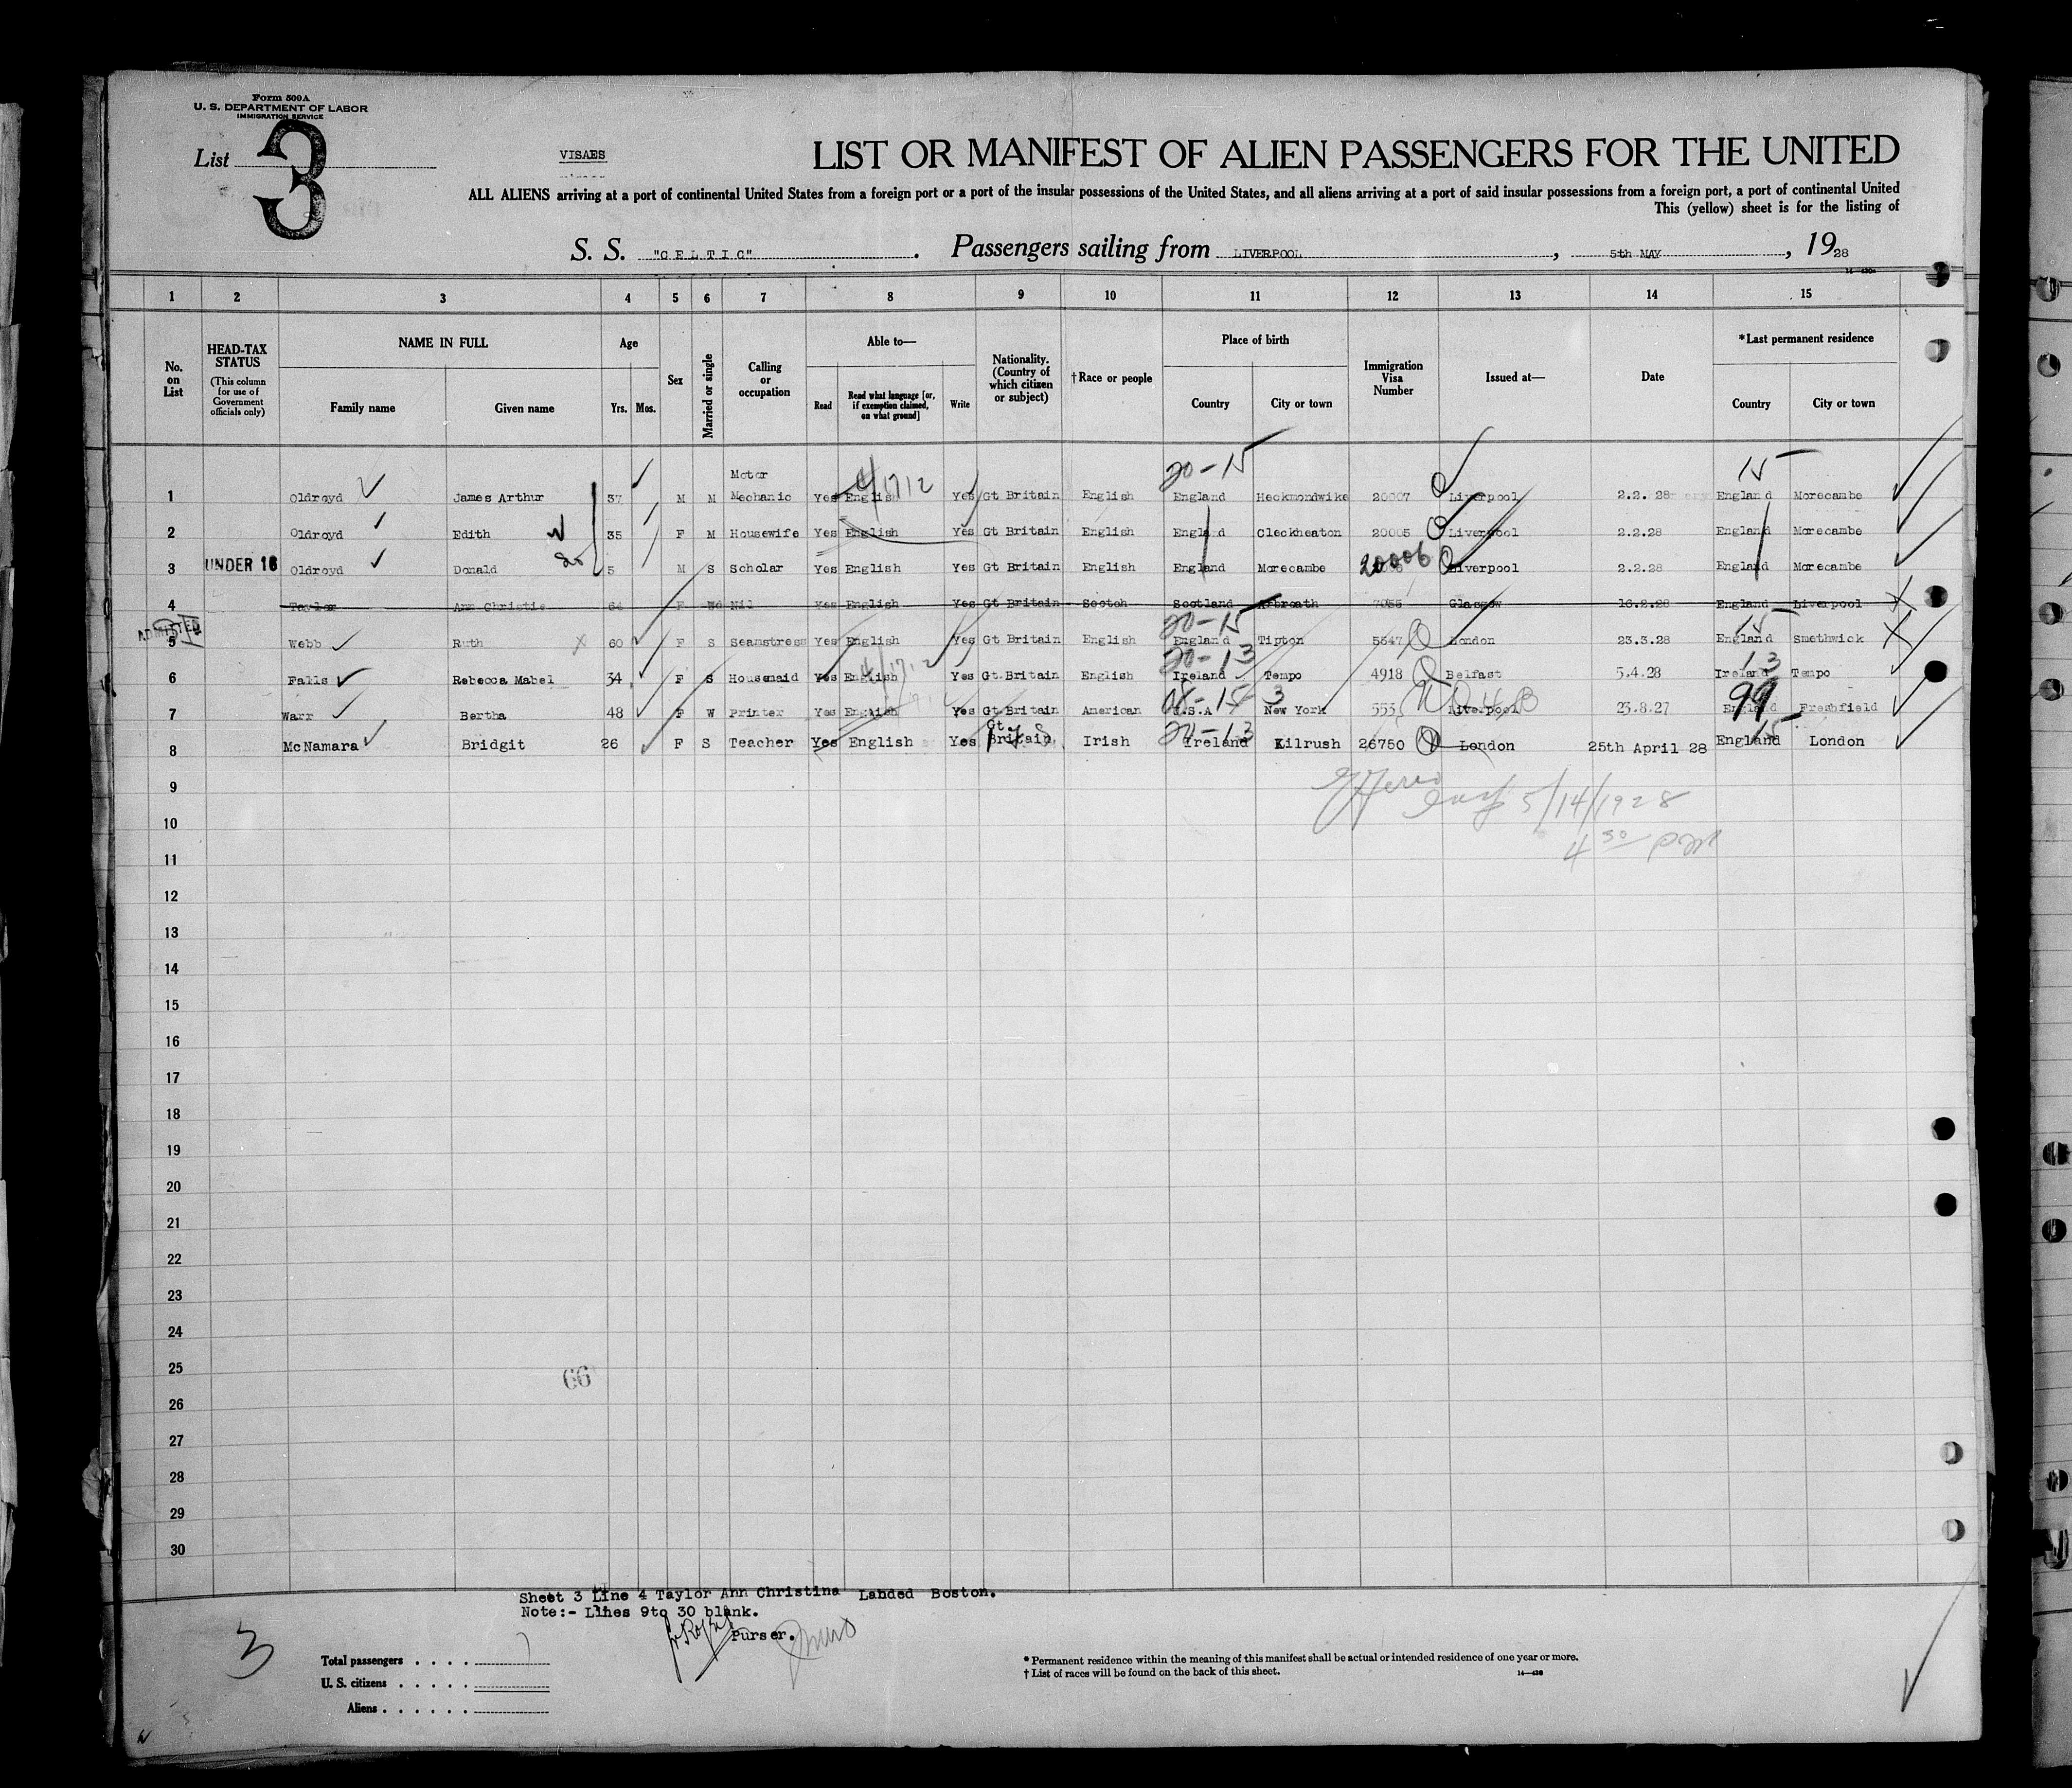 Form 500A
U. S. DEPARTMENT OF LABOR
IMMIGRATION SERVICE
List 3
VISAES
LIST OR MANIFEST OF ALIEN PASSENGERS FOR THE UNITED
ALL ALIENS arriving at a port of continental United States from a foreign port or a port of the insular possessions of the United States, and all aliens arriving at a port of said insular possessions from a foreign port, a port of continental United
This (yellow) sheet is for the listing of
S. S. "CELTIC". Passengers sailing from LIVERPOOL, 5th MAY, 1928
1 2 3 4 5 6 7 8 9 10 11 12 13 14 15
No. on List
HEAD-TAX STATUS
(This column for use of Government officials only)
NAME IN FULL
Family name Given name
Age
Yrs. Mos.
Sex
Married or single
Calling or occupation
Able to—
Read
Read what language [or, if exemption claimed, on what ground]
Write
Nationality. (Country of which citizen or subject)
†Race or people
Place of birth
Country City or town
Immigration Visa Number
Issued at—
Date
*Last permanent residence
Country City or town
20-15 15
1 Oldroyd James Arthur 37 M M Motor Mechanic Yes English Yes Gt Britain English England Heckmondwike 20007 Liverpool 2.2.28 England Morecambe
2 Oldroyd Edith 35 F M Housewife Yes English Yes Gt Britain English England Cleckheaton 20005 Liverpool 2.2.28 England Morecambe
3 UNDER 16 Oldroyd Donald 5 M S Scholar Yes English Yes Gt Britain English England Morecambe 20006 Liverpool 2.2.28 England Morecambe
4 Taylor Ann Christie 64 F Wd Nil Yes English Yes Gt Britain Scotch Scotland Arbroath 7055 Glasgow 16.2.28 England Liverpool
ADMITTED
20-15 15
5 Webb Ruth 60 F S Seamstress Yes English Yes Gt Britain English England Tipton 5647 London 23.3.28 England Smethwick
20-13 13
6 Falls Rebecca Mabel 34 F S Housemaid Yes English Yes Gt.Britain English Ireland Tempo 4918 Belfast 5.4.28 Ireland Tempo
99
7 Warr Bertha 48 F W Printer Yes English Yes Gt Britain American U.S.A New York 553 Liverpool 23.8.27 England Freshfield
20-13 15
8 McNamara Bridgit 26 F S Teacher Yes English Yes Gt Britain Irish Ireland Kilrush 26750 London 25th April 28 England London
9
5/14/1928
10
4 30 PM
11
12
13
14
15
16
17
18
19
20
21
22
23
24
25
66
26
27
28
29
30
Sheet 3 Line 4 Taylor Ann Christina Landed Boston.
Note:- Lines 9to 30 blank.
Purser.
3
Total passengers
U. S. citizens
Aliens
* Permanent residence within the meaning of this manifest shall be actual or intended residence of one year or more.
† List of races will be found on the back of this sheet.